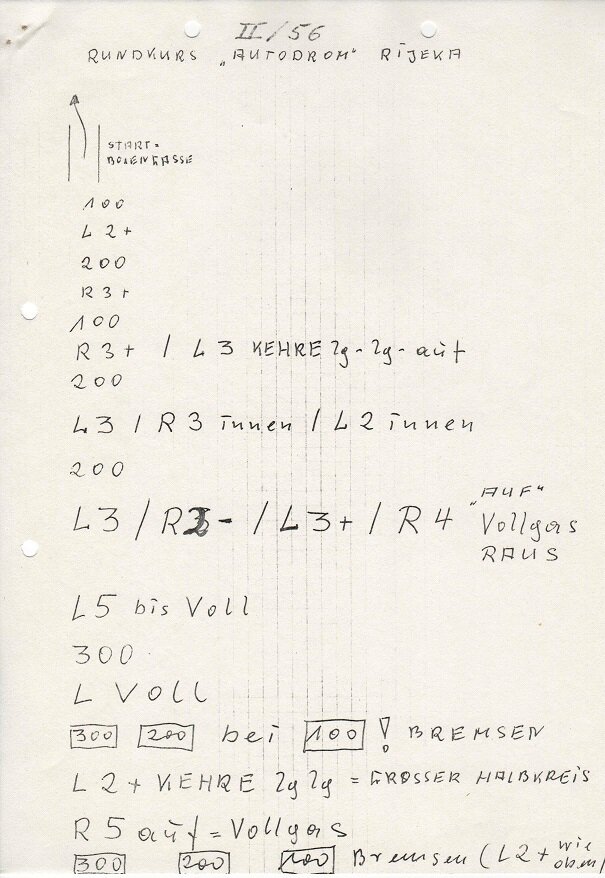 II/56
RUNDKURS „AUTODROM" RIJEKA
START-
BOXENGASSE
100
L 2+
200
R 3+
100
R 3+ / L 3 KEHRE lg-lg-auf
200
L3 / R3 innen / L2 innen
200
L3 / R3- / L3+ / R4 „AUF" Vollgas RAUS
L5 bis Voll
300
L VOLL
300 200 bei 100 ! BREMSEN
L 2+ KEHRE lg lg = GROSSER HALBKREIS
R 5 auf = Vollgas
300 200 100 Bremsen (L2+ wie oben)